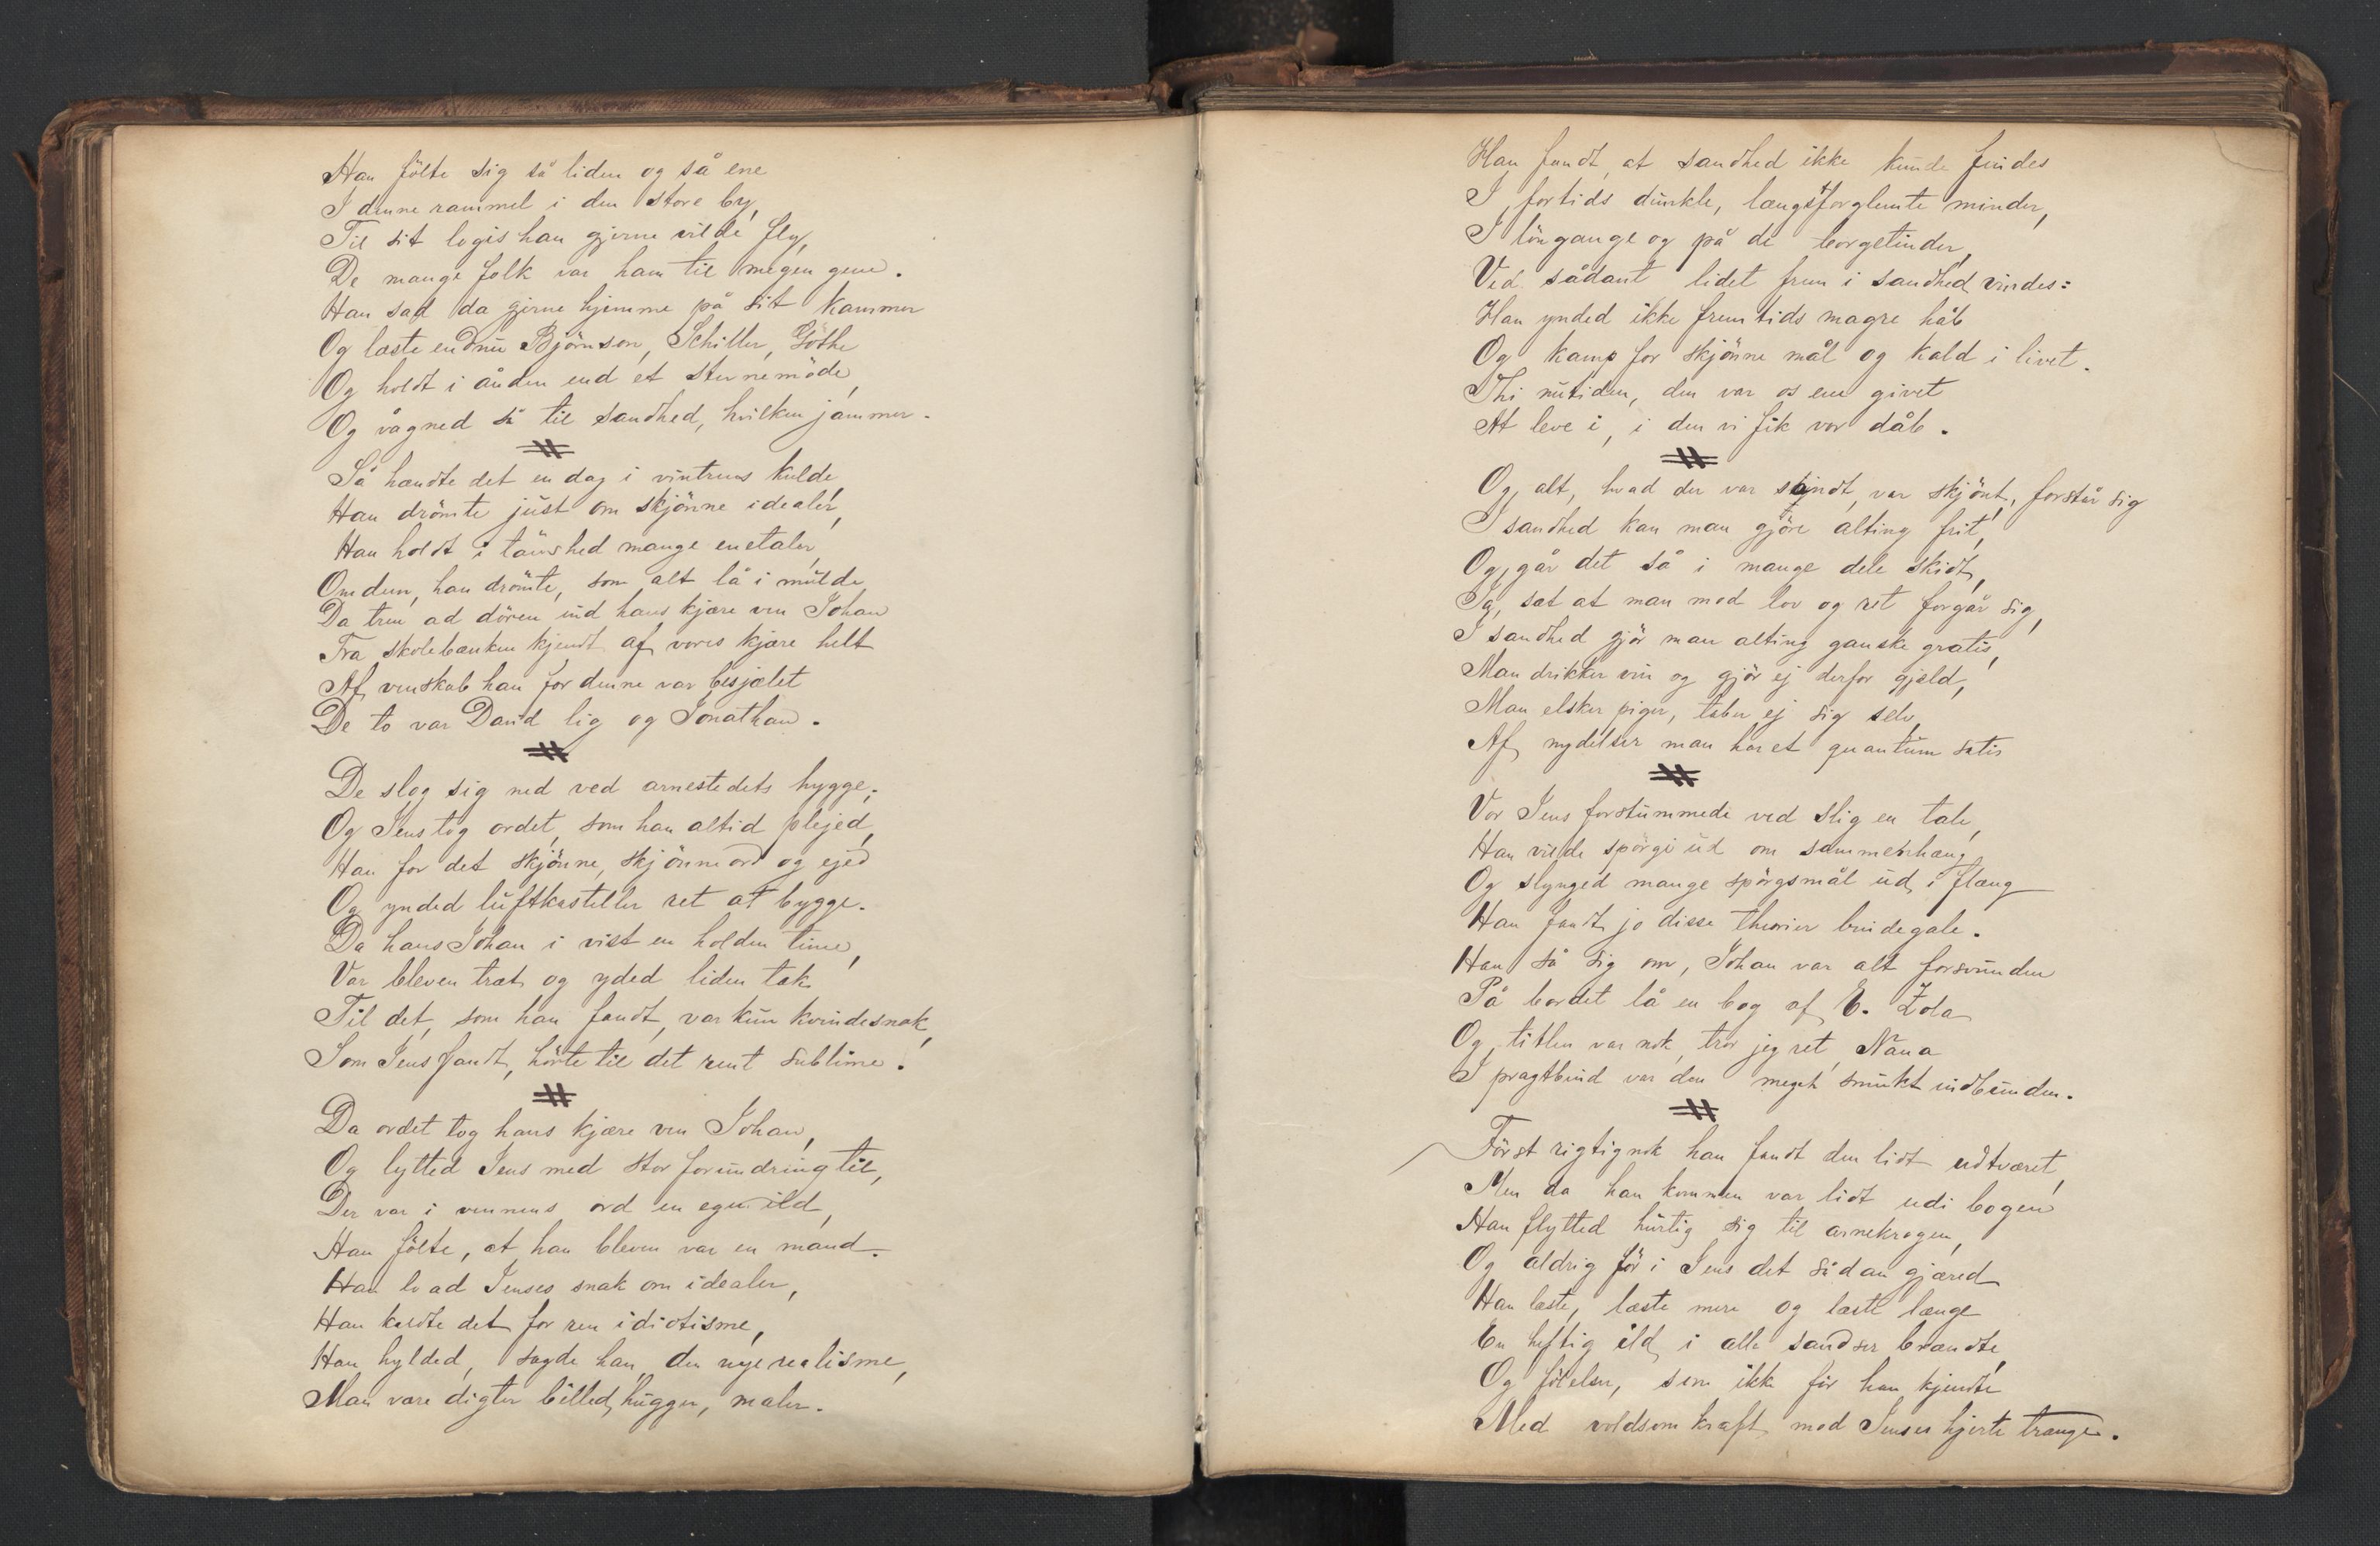 Han fölte sig så liden og så ene
I denne rammel i den store by,
Til sit logis han gjerne vilde fly,
De mange folk var ham til megen gene.
Han sad da gjerne hjemme på sit kammer
Og læste endnu Björnson, Schiller, Göthe
Og holdt i ånden end et stevnemöde,
Og vågned så til sandhed, hvilken jammer.
#
Så hændte det en dag i vintrens kulde,
Han drömte just om skjönne idealer,
Han holdt i taushed mange enetaler,
Om dem, han drömte, som alt lå i mulde,
Da tren ad dören ind hans kjære ven Johan
Fra skolebænken kjendt af vores kjære helt
Af venskab han for denne var besjælet
De to var David lig og Jonathan.
#
De slog sig ned ved arnestedets hygge;
Og Jens tog ordet, som han altid plejed,
Han for det skjönne, skjönne ord og ejed
Og ynded luftkasteller ret at bygge.
Da hans Johan i vist en holden time,
Var bleven træt og yded liden tak
Til det, som han fandt, var kun kvindesnak,
Som Jens fandt, hörte til det rent sublime.
#
Da ordet tog hans kjære ven Johan,
Og lytted Jens med stor forundring til,
Der var i vennens ord en egen ild,
Han fölte, at han bleven var en mand.
Han lo ad Jenses snak om idealer,
Han kaldte det for ren idiotisme,
Han hylded, sagde han, den nye realisme,
Man være digter billedhugger, maler.
Han fandt, at sandhed ikke kunde findes
I fortids dunkle, længstforglemte minder,
I löngange og på de borgetinder,
Ved sådant lidet frem i sandhed vindes:
Han ynded ikke fremtids magre håb
Og kamp for skjönne mål og kald i livet.
Thi nutiden, den var os ene givet
At leve i, i den vi fik vor dåb.
#
Og alt, hvad der var sandt, var skjönt, forstår sig
I sandhed kan man gjöre alting frit,
Og, går det så i mange dele skidt,
Ja, sæt at man mod lov og ret forgår sig,
I sandhed gjör man alting ganske gratis,
Man drikker vin og gjör ej derfor gjæld,
Man elsker piger, taber ej sig selv,
Af nydelser man har et quantum satis
#
Vor Jens forstummede ved slig en tale,
Han vilde spörge ud om sammenhæng
Og slynged mange spörgsmål ud i flæng
Han fandt jo disse theorier bindegale.
Han så sig om, Johan var alt forsvunden
På bordet lå en bog af E. Zola
Og titlen var nok, tror jeg ret, Nana
I pragtbind var den meget smukt indbunden.
#
Först rigtignok han fandt den lidt udtværet,
Men da han kommen var lidt udi bogen
Han flytted hurtig sig til arnekrogen,
Og aldrig för i Jens det sådan gjæred
Han læste, læste mere og læste længe
En heftig ild i alle sandser brændte,
Og fölelser, som ikke för han kjendte
Med voldsom kraft mod Jenses hjerte trænge.